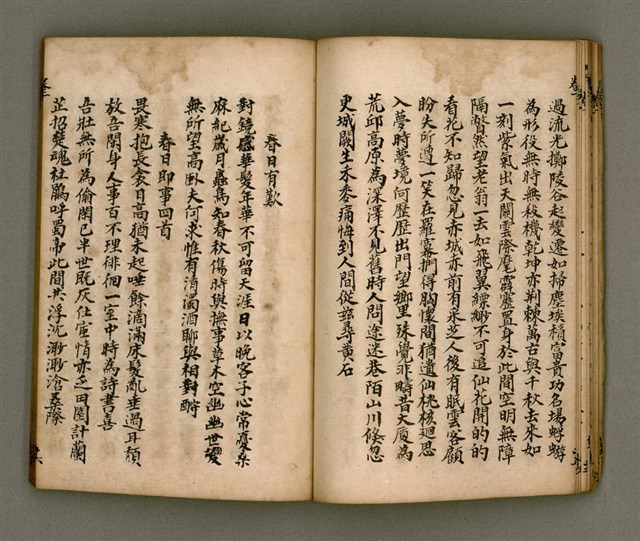 過流光擲陵谷起變遷如掃塵埃積富貴功名場蜉蝣
為形役無時無殺機乾坤亦荆棘萬古與千秋去來如
一刻紫氣出天關雲際麾霹靂置身於此間空明無障
隔瞥然望老翁一去如飛翼縹緲不可追仙花開的的
春花不知歸忽見赤城赤前有采芝人後有眠雲客顧
盼失所遭一笑在羅幕捫得胸懷間猶遺仙桃核迴思
入夢時夢境何歷歷出門望鄉里殊覺非疇昔大厦為
荒邱高原為深澤不見舊時人問途迷巷陌山川倏忽
更城闕生禾黍痛悔到人間從兹尋黃石
春日有歎
對鏡感華髮年華不可留天涯日以晚客子心常憂桑
麻紀歲月蟲鳥知春秋傷時與撫事草木空幽幽世變
無所望高卧夫何求惟有清濁酒聊與相對酹
春日即事四首
畏寒抱長衾日高猶未起唾餘滴滿床髮亂垂過耳頽
放吾閒身人事百不理徘徊一室中時為詩書喜
吾壯無所為偷閑已半世既灰仕宦情亦乏田園計蘭
芷招楚魂杜鵑呼蜀帝此間共浮沉渺渺滄桑際